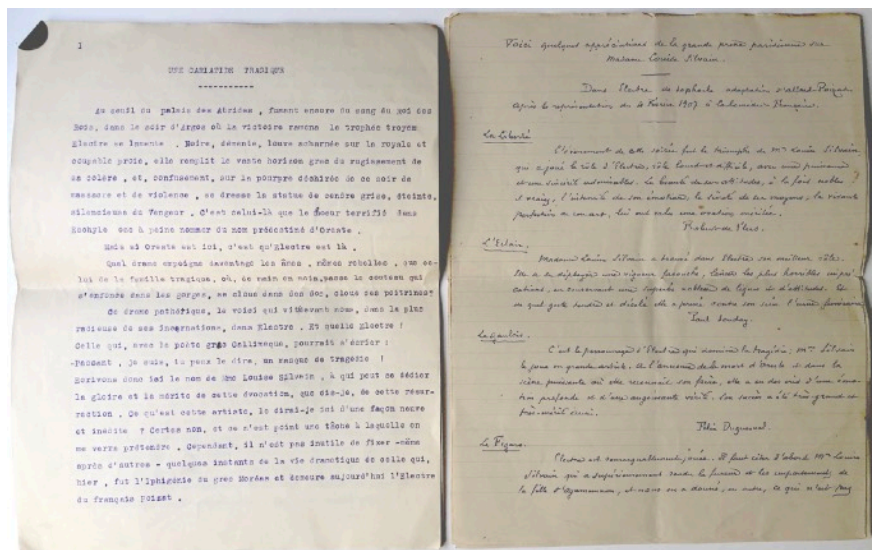 1
UNE CARIATIDE TRAGIQUE
-----------
Au seuil du palais des Atrides , fumant encore du sang du Roi des
Rois, dans le soir d'Argos où la victoire ramena le trophée troyen
Electre se lamente . Noire, démente, louve acharnée sur la royale et
coupable proie, elle remplit le vaste horizon grec du rugissement de
sa colère , et, confusément, sur la pourpre déchirée de ce soir de
massacre et de violence , se dresse la statue de cendre grise, éteinte,
silencieuse du Vengeur . C'est celui-là que le choeur terrifié dans
Eschyle ose à peine nommer du nom prédestiné d'Oreste .
Mais si Oreste est ici, c'est qu'Electre est là .
Quel drame empoigne davantage les âmes , mêmes rebelles , que ce-
lui de la famille tragique, où, de main en main, passe le couteau qui
s'enfonce dans les gorges, se cloue dans des dos, cloue ses poitrines?
Ce drame pathétique, le voici qui
 dans la plus
radieuse de ses incarnations, dans Electre . Et quelle Electre !
Celle qui, avec le poète grec Callimaque, pourrait s'écrier :
-Passant , je suis, tu peux le dire, un masque de tragédie !
Ecrivons donc ici le nom de Mme Louise Silvain , à qui peut se dédier
la gloire et le mérite de cette évocation, que dis-je, de cette résur-
rection . Ce qu'est cette artiste, le dirai-je ici d'une façon neuve
et inédite ? Certes non, et ce n'est point une tâche à laquelle on
me verra prétendre . Cependant, il n'est pas inutile de fixer -même
après d'autres - quelques instants de la vie dramatique de celle qui,
hier , fut l'Iphigénie du grec Moréas et demeure aujourd'hui l'Electre
du français Poizat .
Voici quelques appréciations de la grande presse parisienne sur
Madame Louise Silvain.
Dans Electre de Sophocle adaptation d'Alfred Poizat
après la représentation du 4 Février 1907 à la Comédie Française.
La Liberté
L'évènement de cette soirée fut le triomphe de Mme Louise Silvain
qui a joué le rôle d'Electre, rôle lourd et difficile, avec une puissance
et une sincérité admirables. La beauté de ses attitudes, à la fois nobles
et vraies, l'intensité de son émotion, la sûreté de ses moyens, la vivante
perfection de son art, lui ont valu une ovation méritée.
Robert de Flers.
L'Eclair.
Madame Louise Silvain a trouvé dans Electre son meilleur rôle.
Elle a su déployer une vigueur farouche, lancer les plus horribles impré-
cations, en conservant une superbe noblesse de ligne et d'attitudes. Et
de quel geste tendre et désolé elle a pressé contre son sein l'urne funéraire
Paul Souday.
Le Gaulois.
C'est le personnage d'Electre qui domine la tragédie; Mme Silvain
le joue en grande artiste. A l'annonce de la mort d'Oreste et dans la
scène puissante où elle reconnait son frère, elle a eu des cris d'une émo-
tion profonde et d'une angoissante vérité. Son succès a été très grand et
très mérité aussi.
Félix Duquesnel.
Le Figaro.
Electre est remarquablement jouée. Il faut citer d'abord Mme Louise
Silvain qui a supérieurement rendu la fureur et les emportements de
la fille d'Agamemnon, et nous en a donné, en outre, ce qui n'est pas